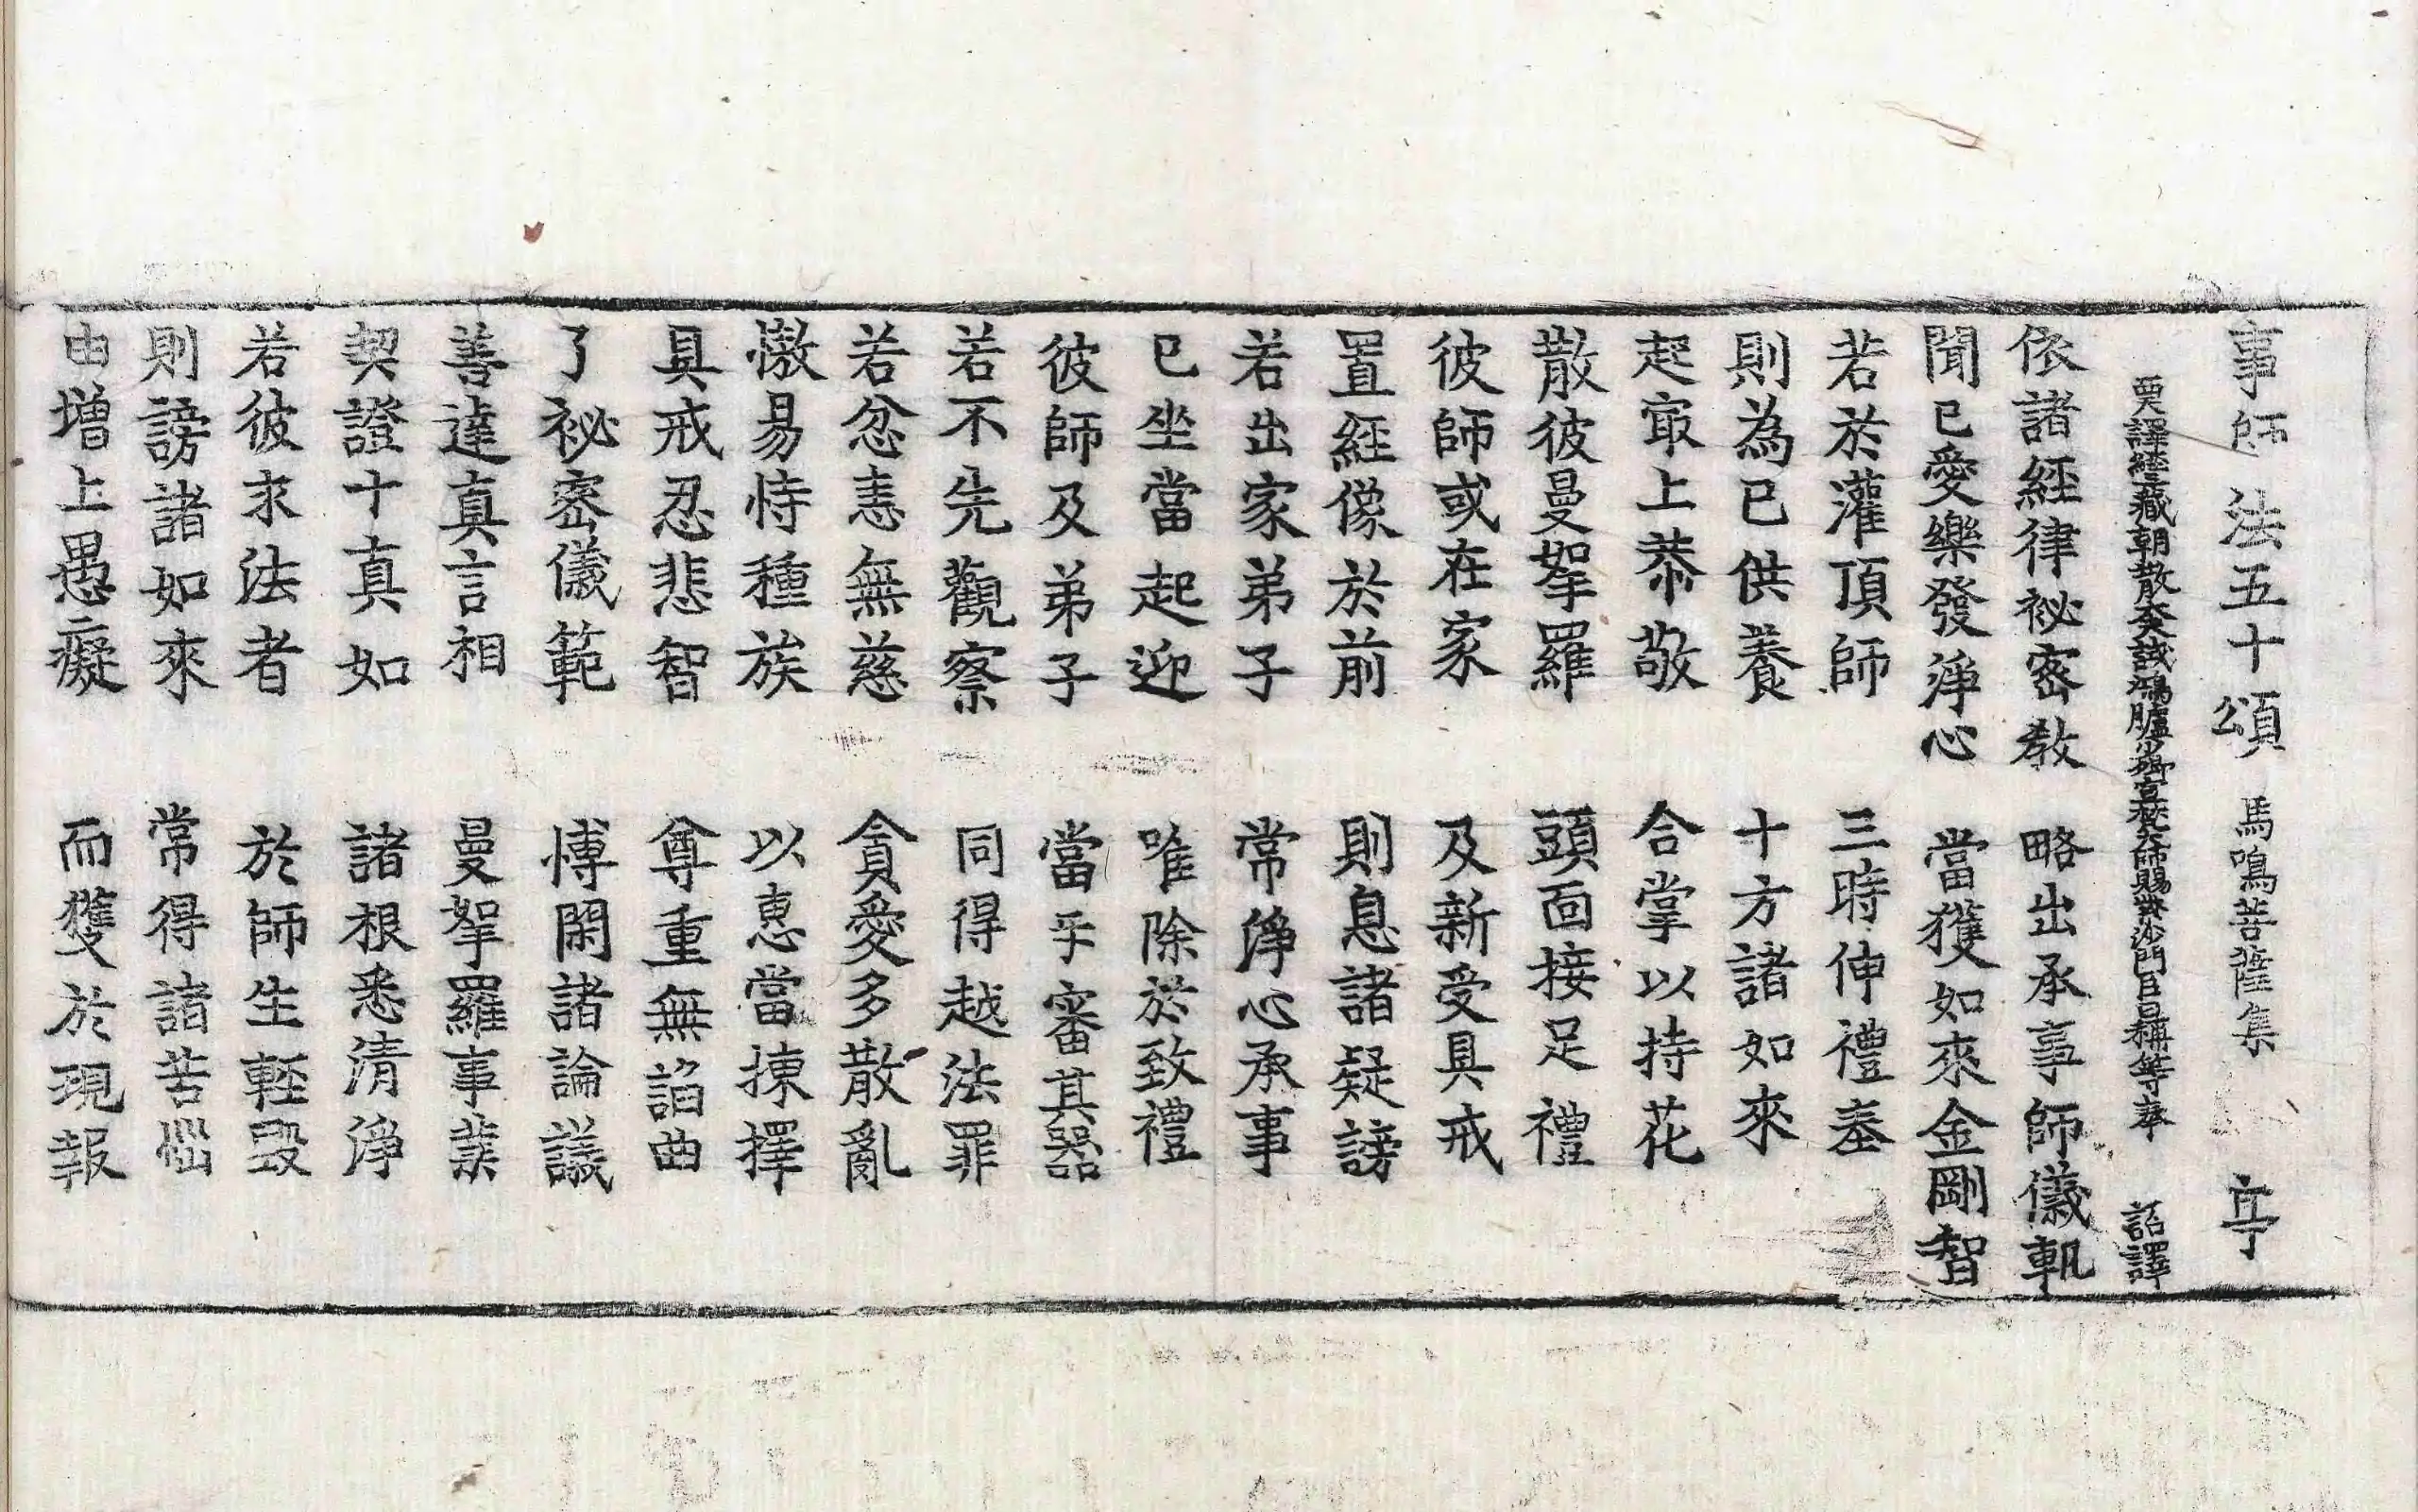 事師法五十頌 馬鳴菩薩集 亭
西天譯經三藏朝散大夫試鴻臚少卿宣梵大師賜紫沙門臣日稱等奉 詔譯
依諸經律祕密教 略出承事師儀軌
聞已愛樂發淨心 當獲如來金剛智
若於灌頂師 三時伸禮奉
則為已供養 十方諸如來
起㝡上恭敬 合掌以持花
散彼曼拏羅 頭面接足禮
彼師或在家 及新受具戒
置經像於前 則息諸疑謗
若出家弟子 常淨心承事
已坐當起迎 唯除於致禮
彼師及弟子 當乎審其器
若不先觀察 同得越法罪
若忿恚無慈 貪愛多散亂
慠易恃種族 以惠當揀擇
具戒忍悲智 尊重無諂曲
了祕密儀範 博閑諸論議
善達真言相 曼拏羅事業
契證十真如 諸根悉清淨
若彼求法者 於師生輕毀
則謗諸如來 常得諸苦惱
由增上愚癡 而獲於現報